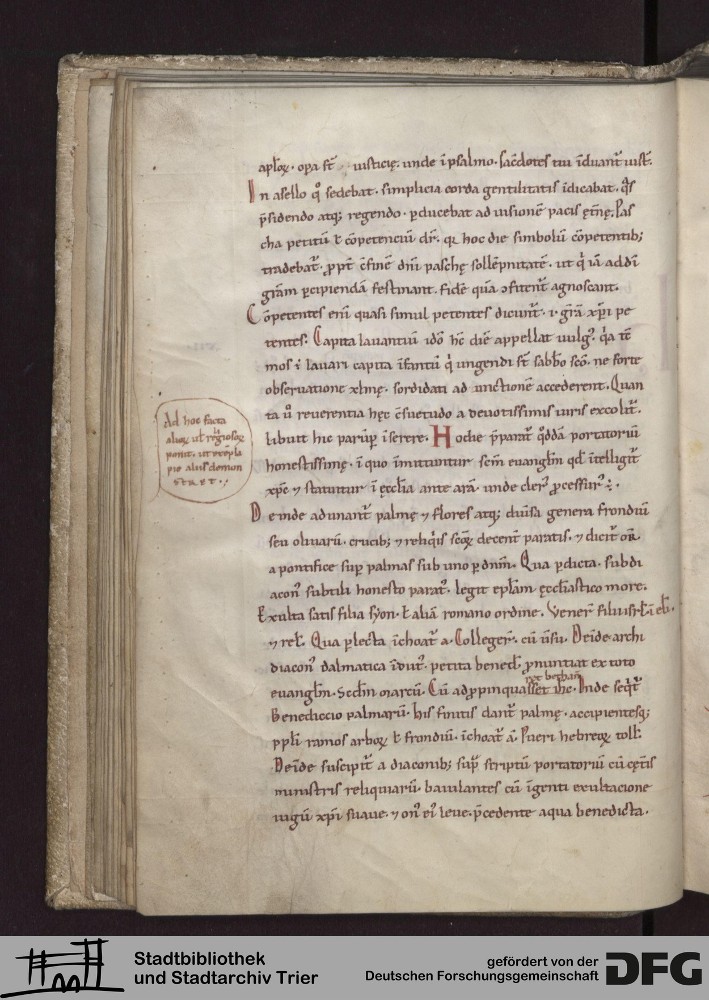 aplox. opa st̄ iusticię. unde ī psalmo. Sacdotes tui īduant᷑ iust̄.
In asello q̊ sedebat. simplicia corda gentilitatis īdicabat. q̄s
p̄sidendo atq; regendo. ꝑducebat ad uisionē pacis ęt̄nę. Pas
cha petitū ł cōpetenciū dr̄. qꝛ hoc die simbolū cōpetentib;
tradebat᷑. ꝓpt̄ c̄finē dn̄i paschę sollēpnitatē. ut qͥ iā ad dn̄i
grām ꝑcipiendā festinant. fidē quā ɔfitent᷑ agnoscant.
Cōpetentes enī quasi simul petentes dicunt᷑. .i. grā xp̄i pe
tentes. Capita lauantiuī idō hc̄ diē appellat uulg᷒. qͥa tc̄
mos ī lauari capita īfantiū qͥ ungendi st̄ sabb̄o sc̄o. ne forte
obseruatione xlmę. sordidati ad unctionē accederent. Quan
ta u̇ reuerentia hęc c̄suetudo a deuotissimis uiris excolit᷑.
libuit hic parūp īserere. Hodie p̄parat᷑ q̊ddā portatoriū
honestissimę. ī quo īmittuntur scm̄ euangłm qd̄ ītelligit᷑
xp̄c ⁊ statuitur ī ęcclīa ante arā. unde cler᷒ ꝓcessur᷒ ē.
Deinde adunant᷑ palmę ⁊ flores atq; diuīsa genera frondiū
seu oliuarū. crucib; ⁊ reliqͥis sc̄oꝝ decent᷑ paratis. ⁊ dicit᷑ or̄
a pontifice sup̄ palmas sub uno ꝑ dnm̄. Qua ꝑdicta. subdi
acon᷒ subtili honesto parat᷒. legit epłam ęccłiastico more.
Exulta satis filia syon. ł aliā romano ordine. Vener̄ filii isrł ī el̄i.
⁊ rel̄. Qua ꝑlecta īchoat᷑ a. Colleger̄. cū ūsu. Deīde archi
diacon᷒ dalmatica īdut᷒. petita bened̄. ꝓnuntiat ex toto
euangłm. Scdm̄ marcū. Cū adpropinquasset ihc. Inde seqͥt᷑
Benediccio palmarū. His finitis dant᷑ palmę. accipientesq;
ppłi ramos arboꝝ ł frondiū. īchoat᷑ ā. Pueri hebreoꝝ toll̄.
Deīde suscipit᷑ a diaconib; sup̄ scriptū portatoriū cū cęt̄is
ministris reliquiarū. baiulantes cū īgenti exultacione
iugū xp̄i suaue. ⁊ on᷒ ei᷒ leue. p̄cedente aqua benedicta.
Ad hoc facta
alioꝝ ul̄ religiosoꝝ
ponit. ut exēpla
pie alius demon
stret.
Stadtbibliothek
und Stadtarchiv Trier
gefördert von der
Deutschen Forschungsgemeinschaft
DFG